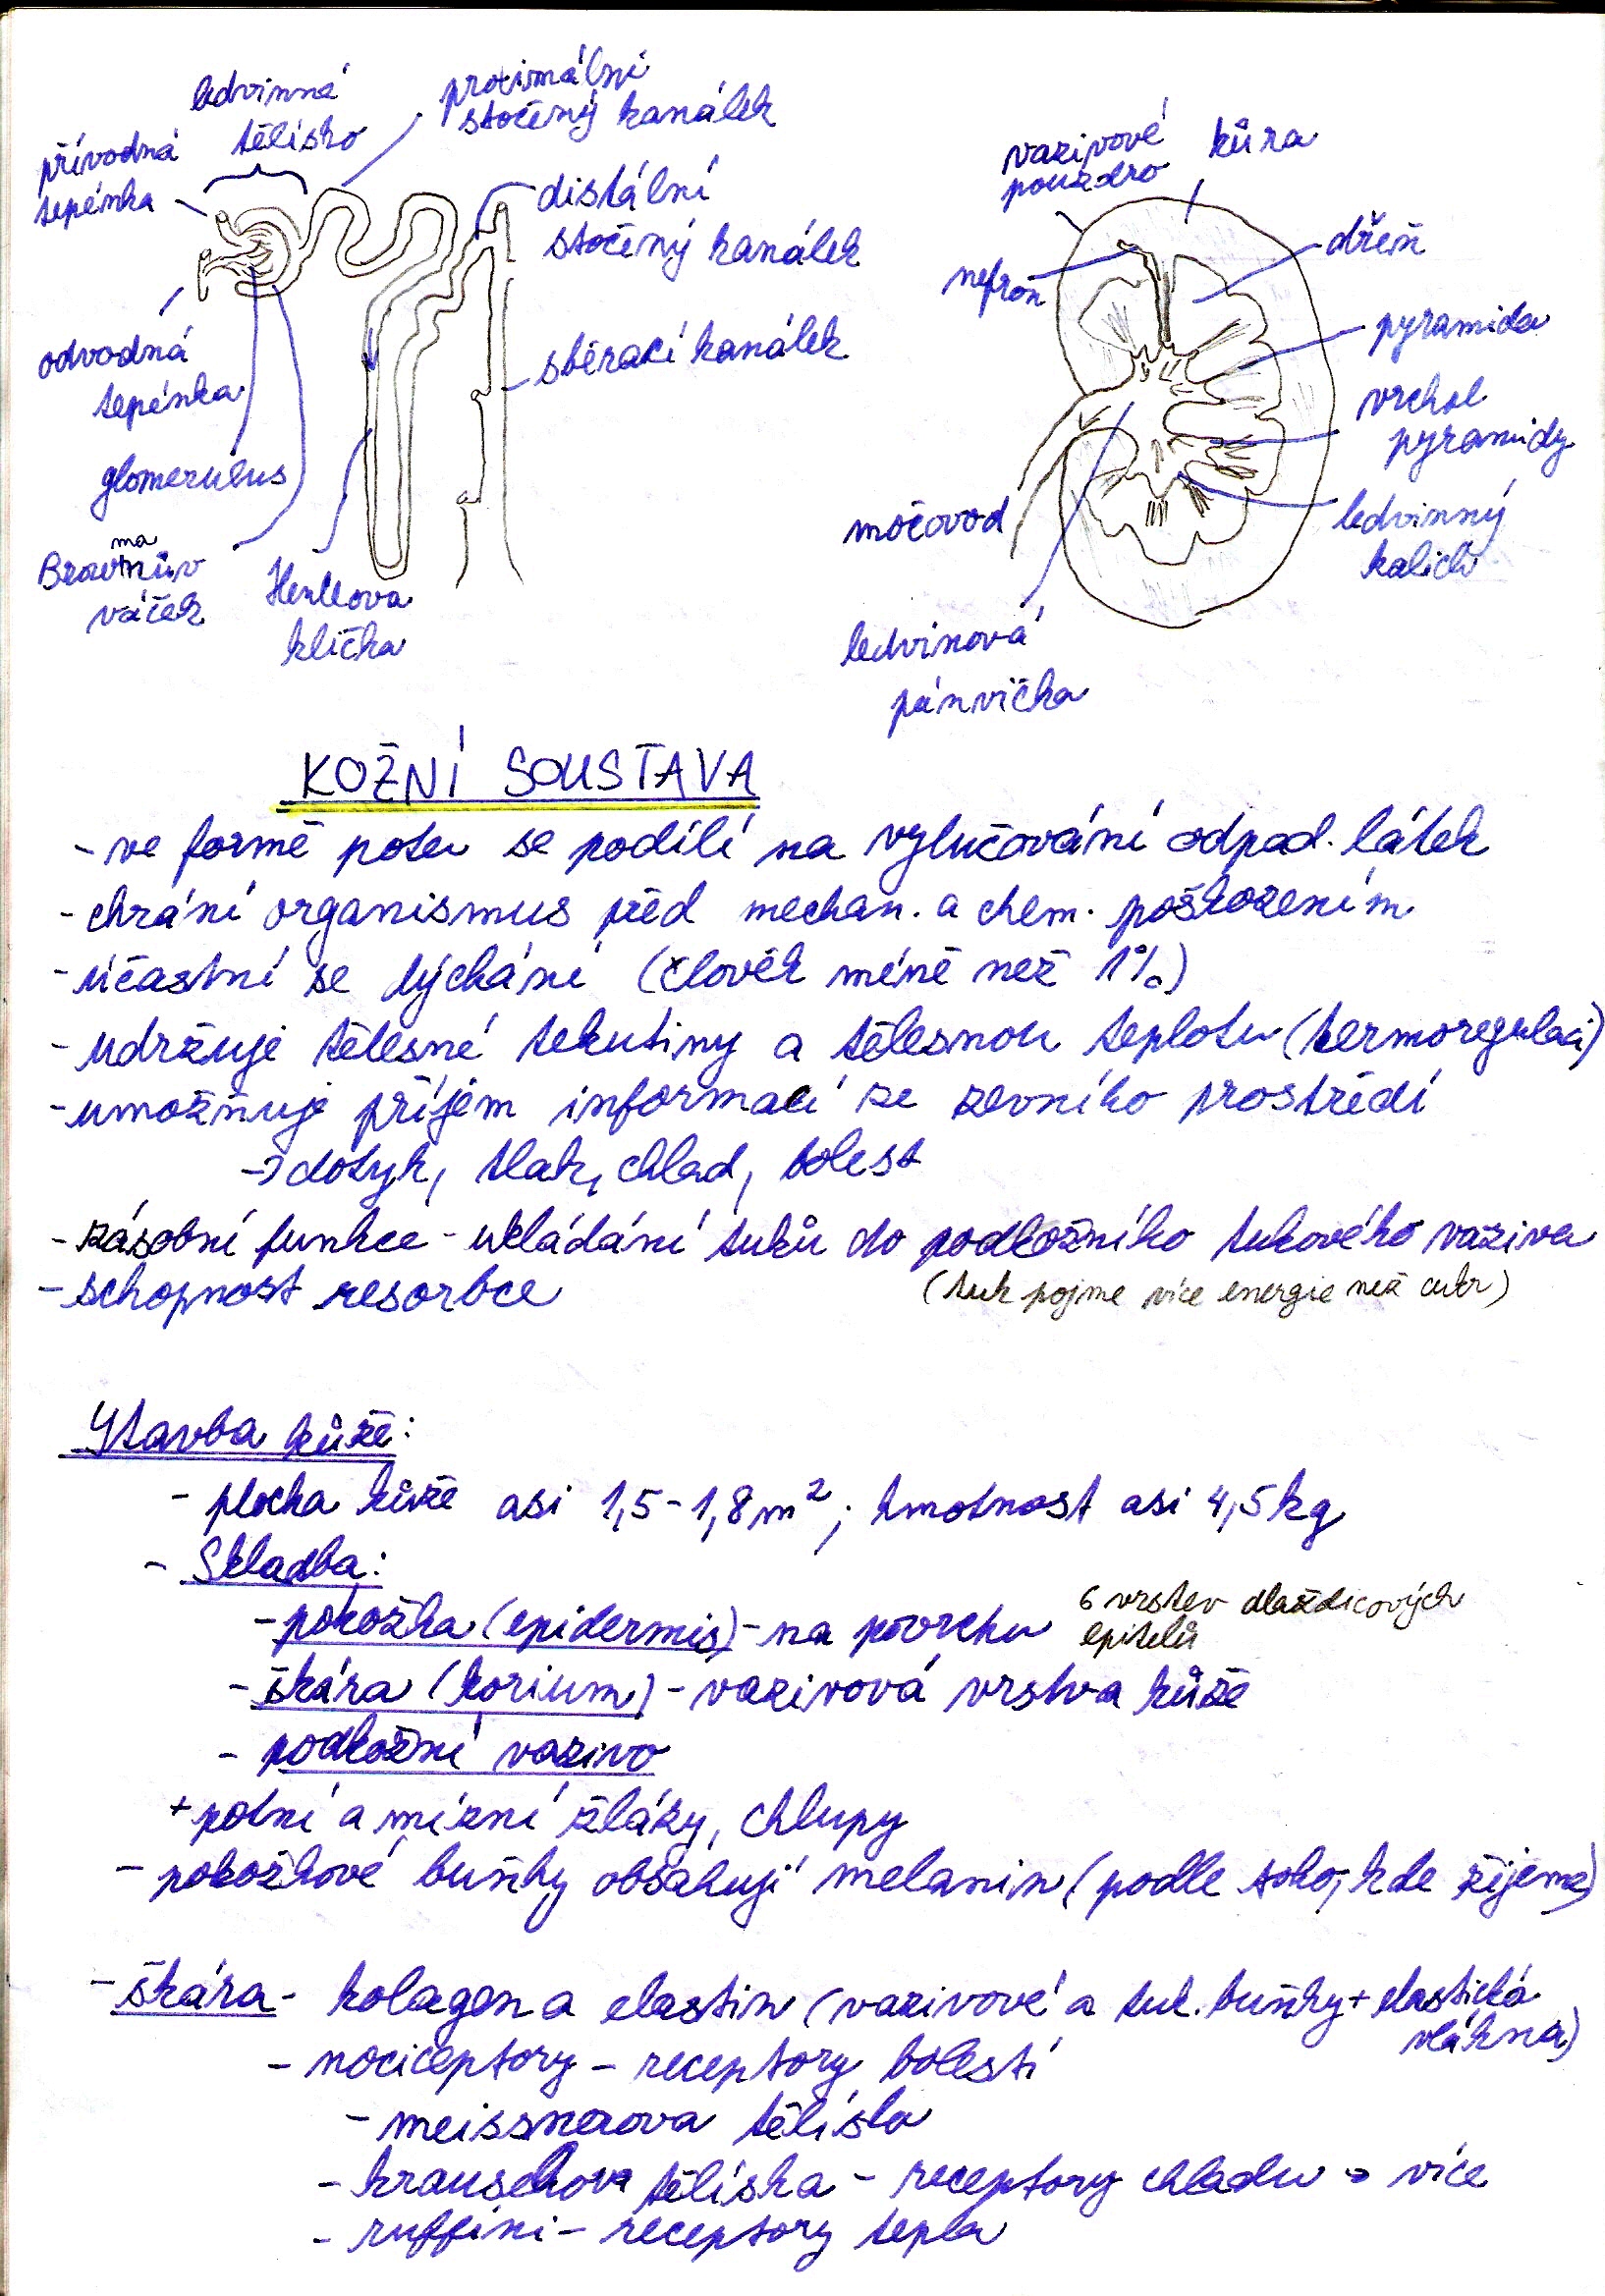 ledvinné
tělísko
proximální
stočený kanálek
přívodná
tepénka
distální
stočený kanálek
odvodná
tepénka
sběrací kanálek
glomerulus
ma
Brownův
váček
Henleova
klička
vazivové
pouzdro
kůra
dřeň
nefron
pyramida
vrchol
pyramidy
močovod
ledvinný
kalich
ledvinová
pánvička
KOŽNÍ SOUSTAVA
- ve formě potu se podílí na vylučování odpad. látek
- chrání organismus před mechan. a chem. poškozením
- účastní se dýchání (člověk méně než 1%)
- udržuje tělesné tekutiny a tělesnou teplotu (termoregulaci)
- umožňuje příjem informací ze zevního prostředí
→ dotyk, tlak, chlad, bolest
- zásobní funkce - ukládání tuků do podkožního tukového vaziva
- schopnost resorbce
(tuk pojme více energie než cukr)
Stavba kůže:
- plocha kůže asi 1,5-1,8m²; hmotnost asi 4,5kg
- Skladba:
- pokožka (epidermis) - na povrchu
6 vrstev dlaždicových
epitelů
- škára (korium) - vazivová vrstva kůže
- podkožní vazivo
+ potní a mízní žlázy, chlupy
- pokožkové buňky obsahují melanin (podle toho, kde žijeme)
- škára - kolagen a elastin (vazivové a tuk. buňky + elastická
vlákna)
- nociceptory - receptory bolesti
- meissnerova tělíska
- krausehova tělíska - receptory chladu → více
- ruffini - receptory tepla